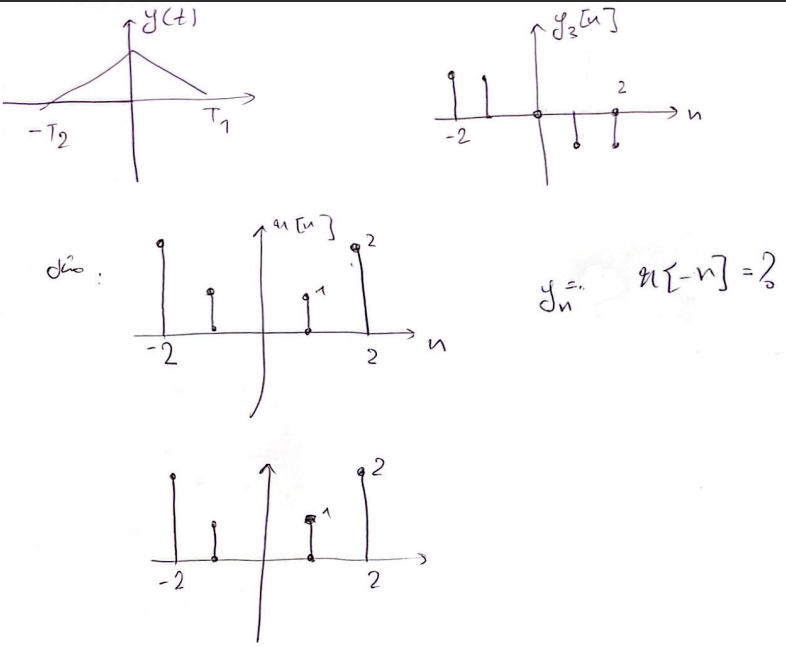 y(t)
-T₂ T₁
y₃[n]
2
-2 n
x[n]
2
1
-2 2 n
yₙ = x[-n] = ?
2
1
-2 2